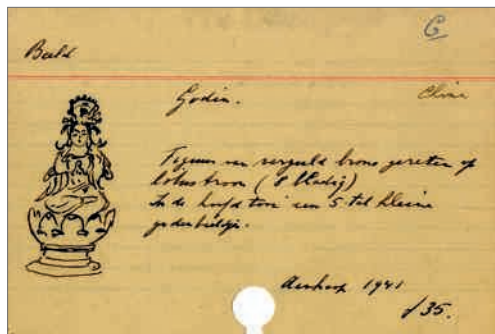 C
Beeld
Godin.
China
Figuur van verguld brons gezeten op
lotus troon (8 bladig)
In de hoofdtooi een 5-tal kleine
godenbeeldjes.
Aankoop 1941
f 35.